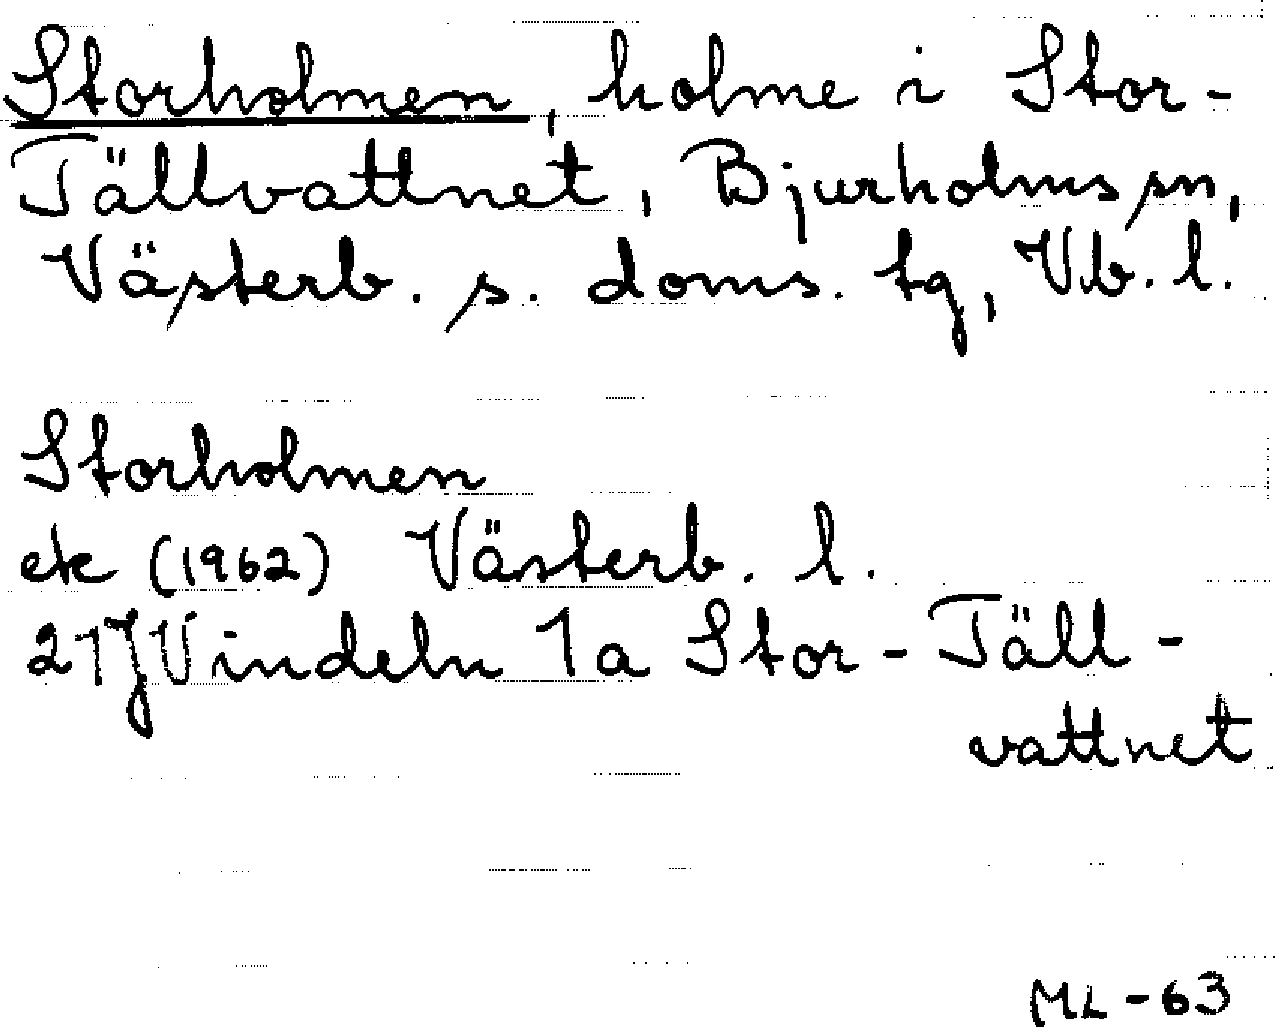 Storholmen, holme i Stor-
Tällvattnet, Bjurholms sn,
Västerb. s. doms. tg, Vb. l.
Storholmen
ek (1962) Västerb. l.
21J Vindeln 1a Stor-Täll-
vattnet
ML-63